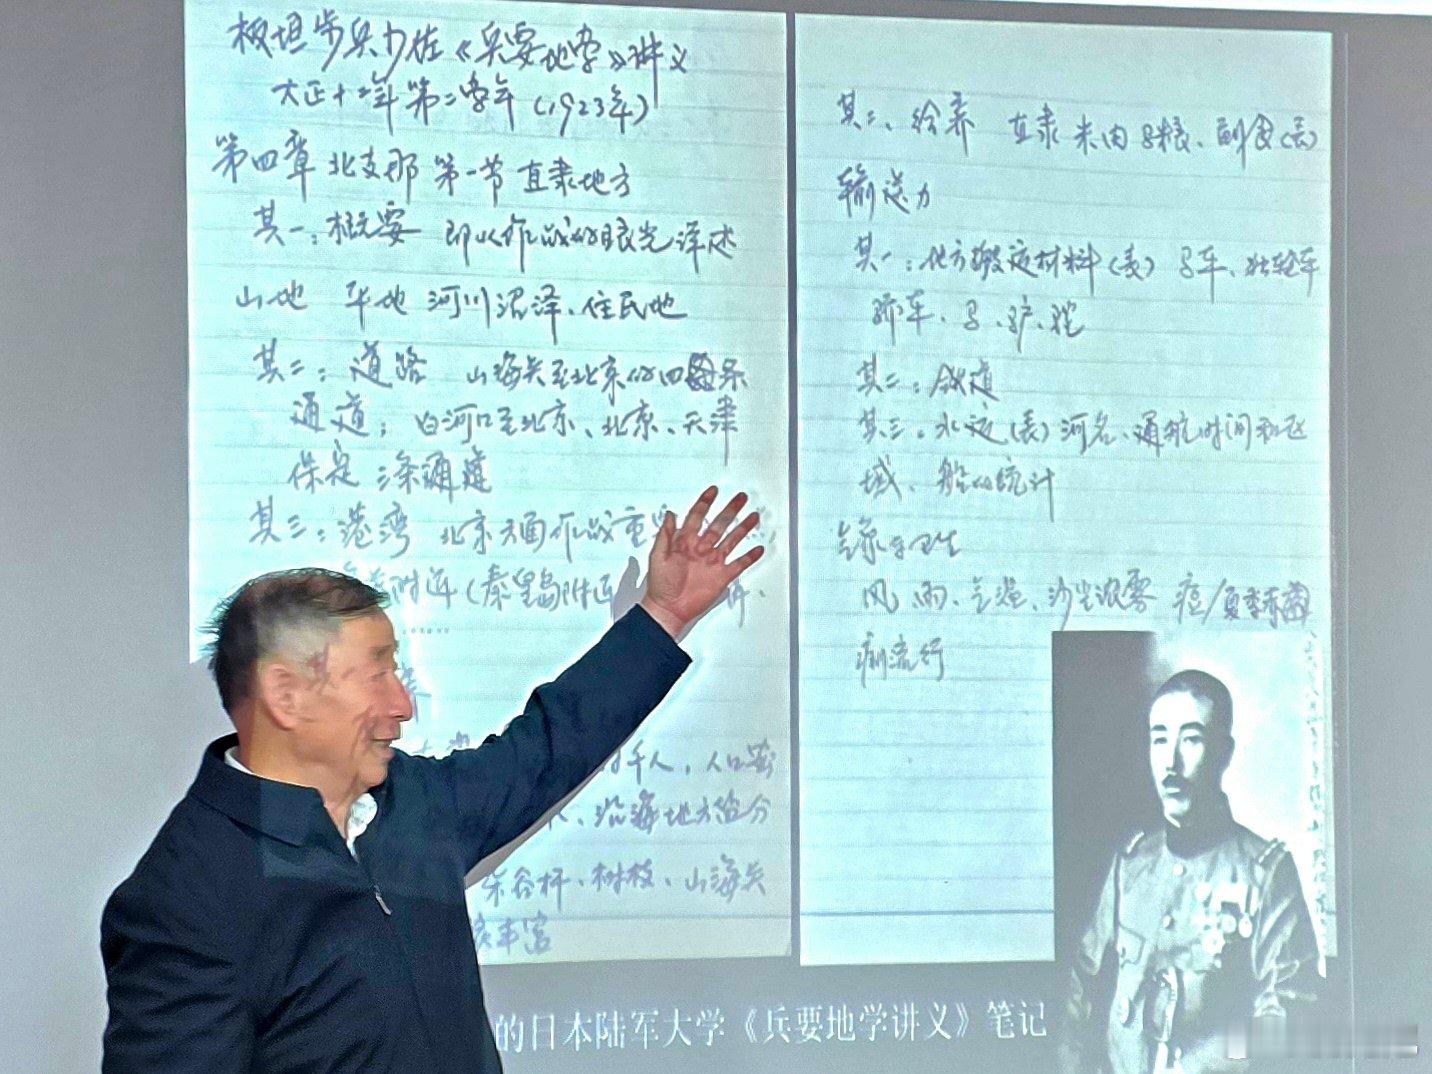 板垣步兵少佐《兵要地学》讲义
大正十二年第二学年(1923年)
第四章 北支那 第一节 直隶地方
其一：概要 即以作战的眼光详述
山地 平地 河川沼泽、住民地
其二：道路 山海关至北京的四条
通道；白河口至北京、北京、天津
保定三条通道
其三：港湾 北京方面作战重
附近(秦皇岛附近
千人，人口
沿海地方给分
柴谷杆、树枝、山海关
丰富
其三、给养 直隶 米肉马粮、副食(表)
输送力
其一：地方搬运材料(表) 马车、独轮车
轿车、马、驴、骡
其二：铁道
其三：水运(表)河名、通航时间和区
域、船的统计
气象与卫生
风、雨、气温、沙尘浓雾 疫/夏季赤
痢流行
的日本陆军大学《兵要地学讲义》笔记